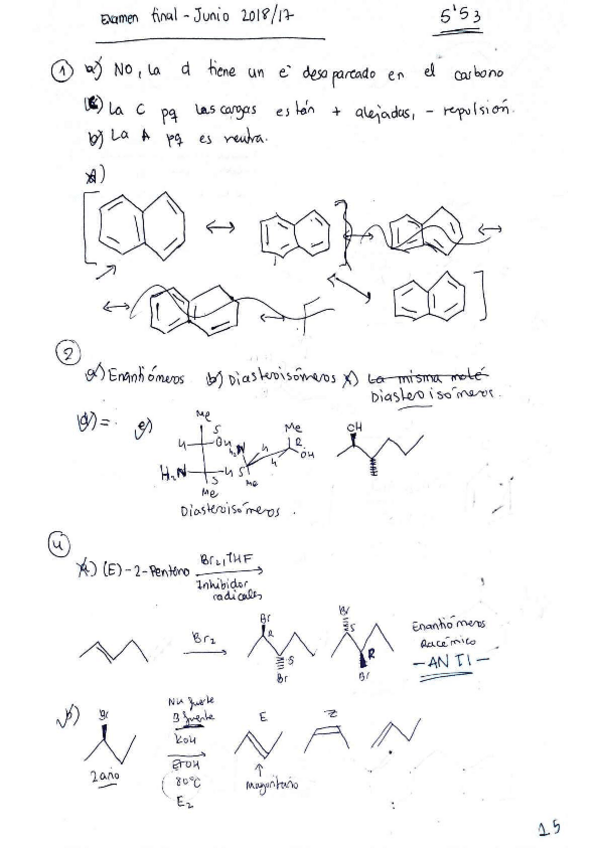 Examen final - Junio 2018/17
5'53
① a) NO, la d tiene un e⁻ desapareado en el carbono
c) La C pq las cargas están + alejadas, - repulsión.
b) La A pq es neutra.
d)
②
a) Enantiómeros b) Diasteroisómeros c) La misma molé
Diasteroisómeros.
d) = . e)
Me
S
H OH
H₂N H
S
Me
H₂N H
H
S
Me
Me
R
OH
OH
Diasteroisómeros.
④
a) (E)-2-Penteno Br₂, THF
Inhibidor
radicales
Br₂
Br
R
S
Br
Br
S
R
Br
Enantiómeros
Racémico
- ANTI -
b) Br
2ario
Nu fuerte
B fuerte
KOH
ETOH
80°C
E₂
E
Z
Mayoritario
15